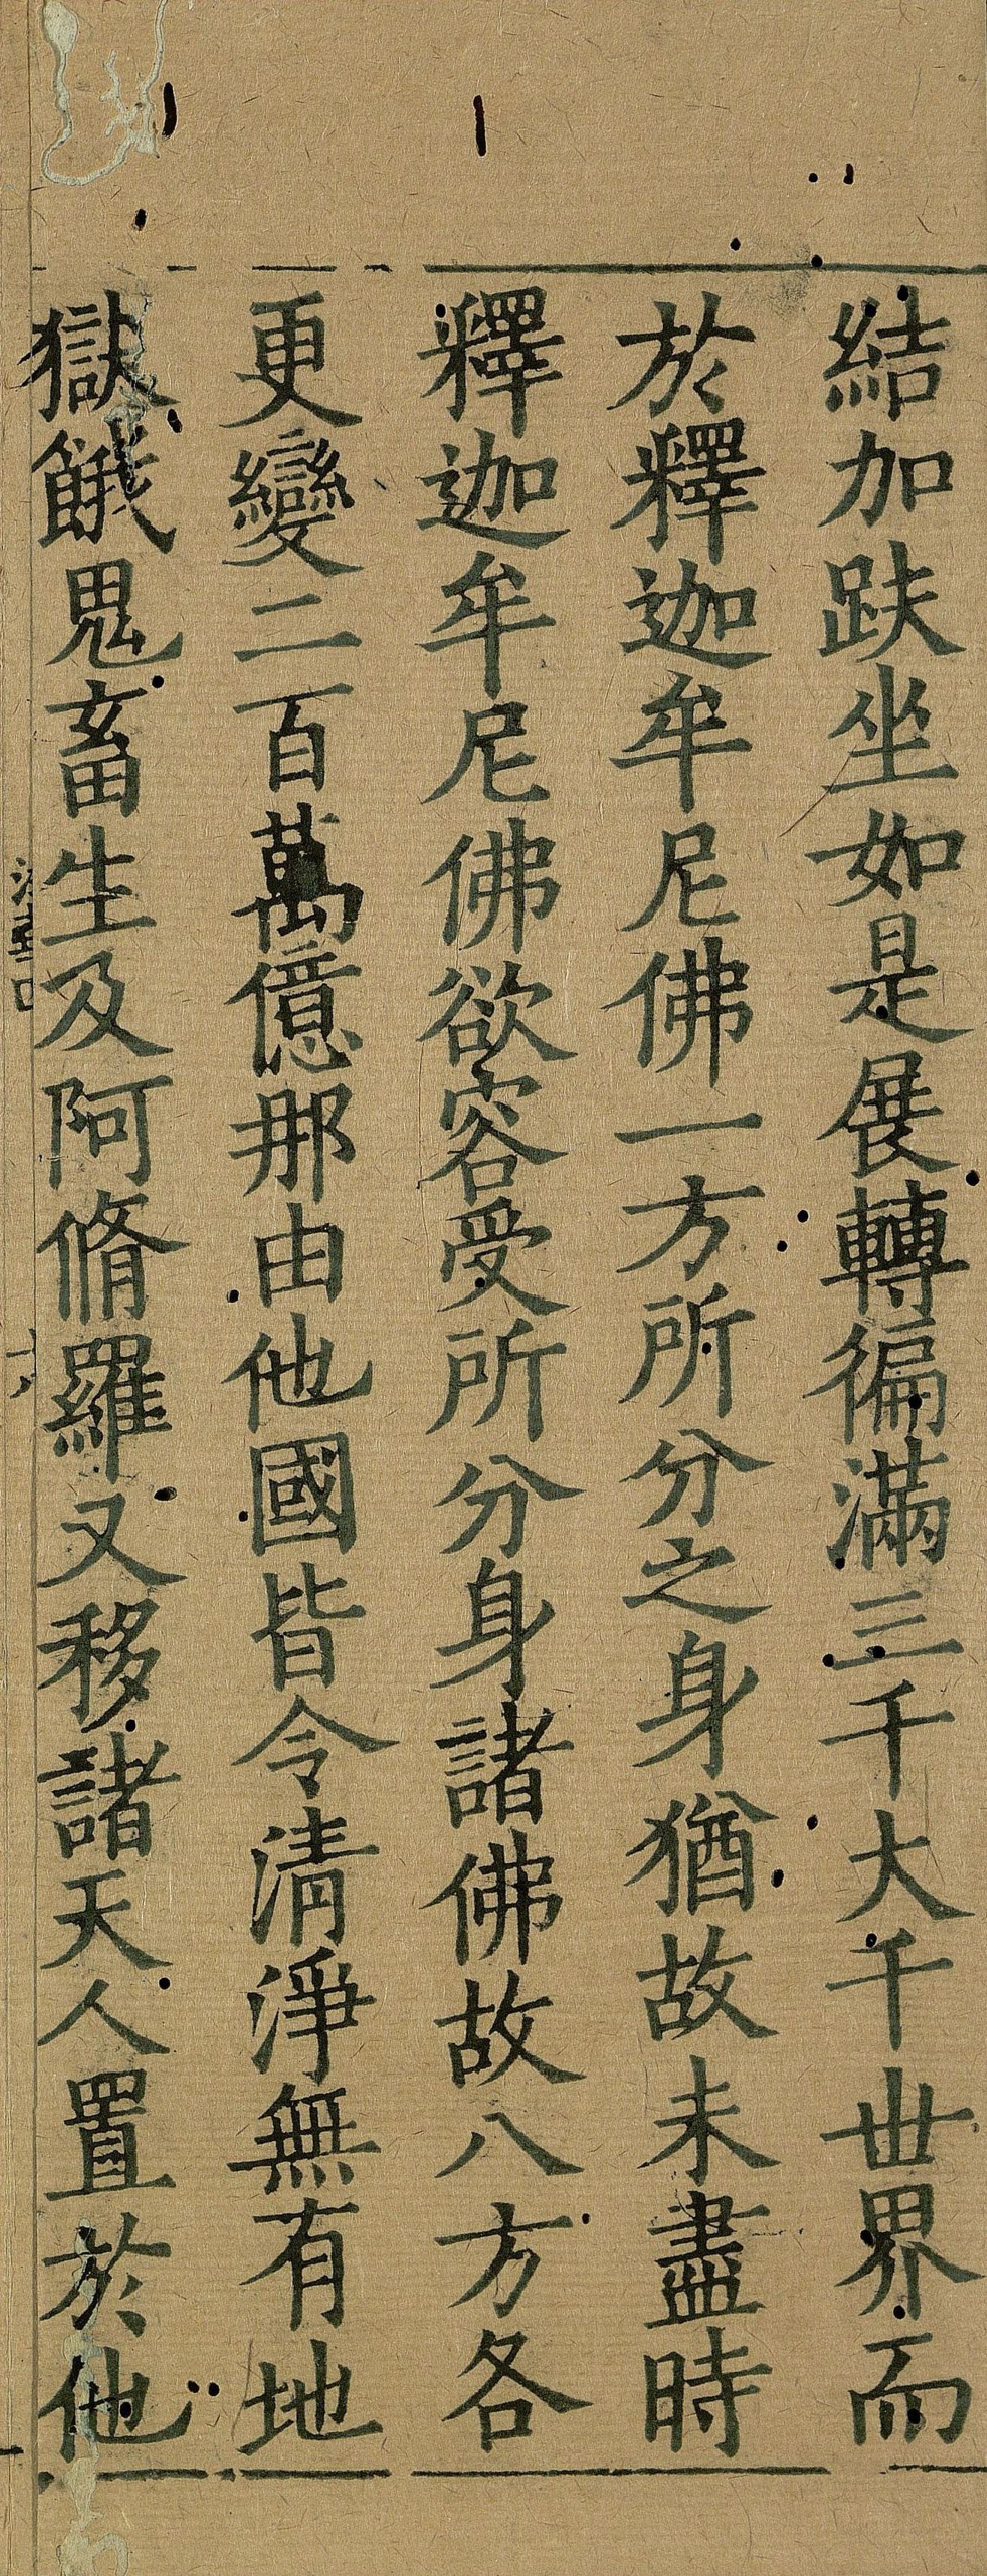 結加趺坐如是展轉徧滿三千大千世界而
於釋迦牟尼佛一方所分之身猶故未盡時
釋迦牟尼佛欲容受所分身諸佛故八方各
更變二百萬億那由他國皆令清淨無有地
獄餓鬼畜生及阿脩羅又移諸天人置於他